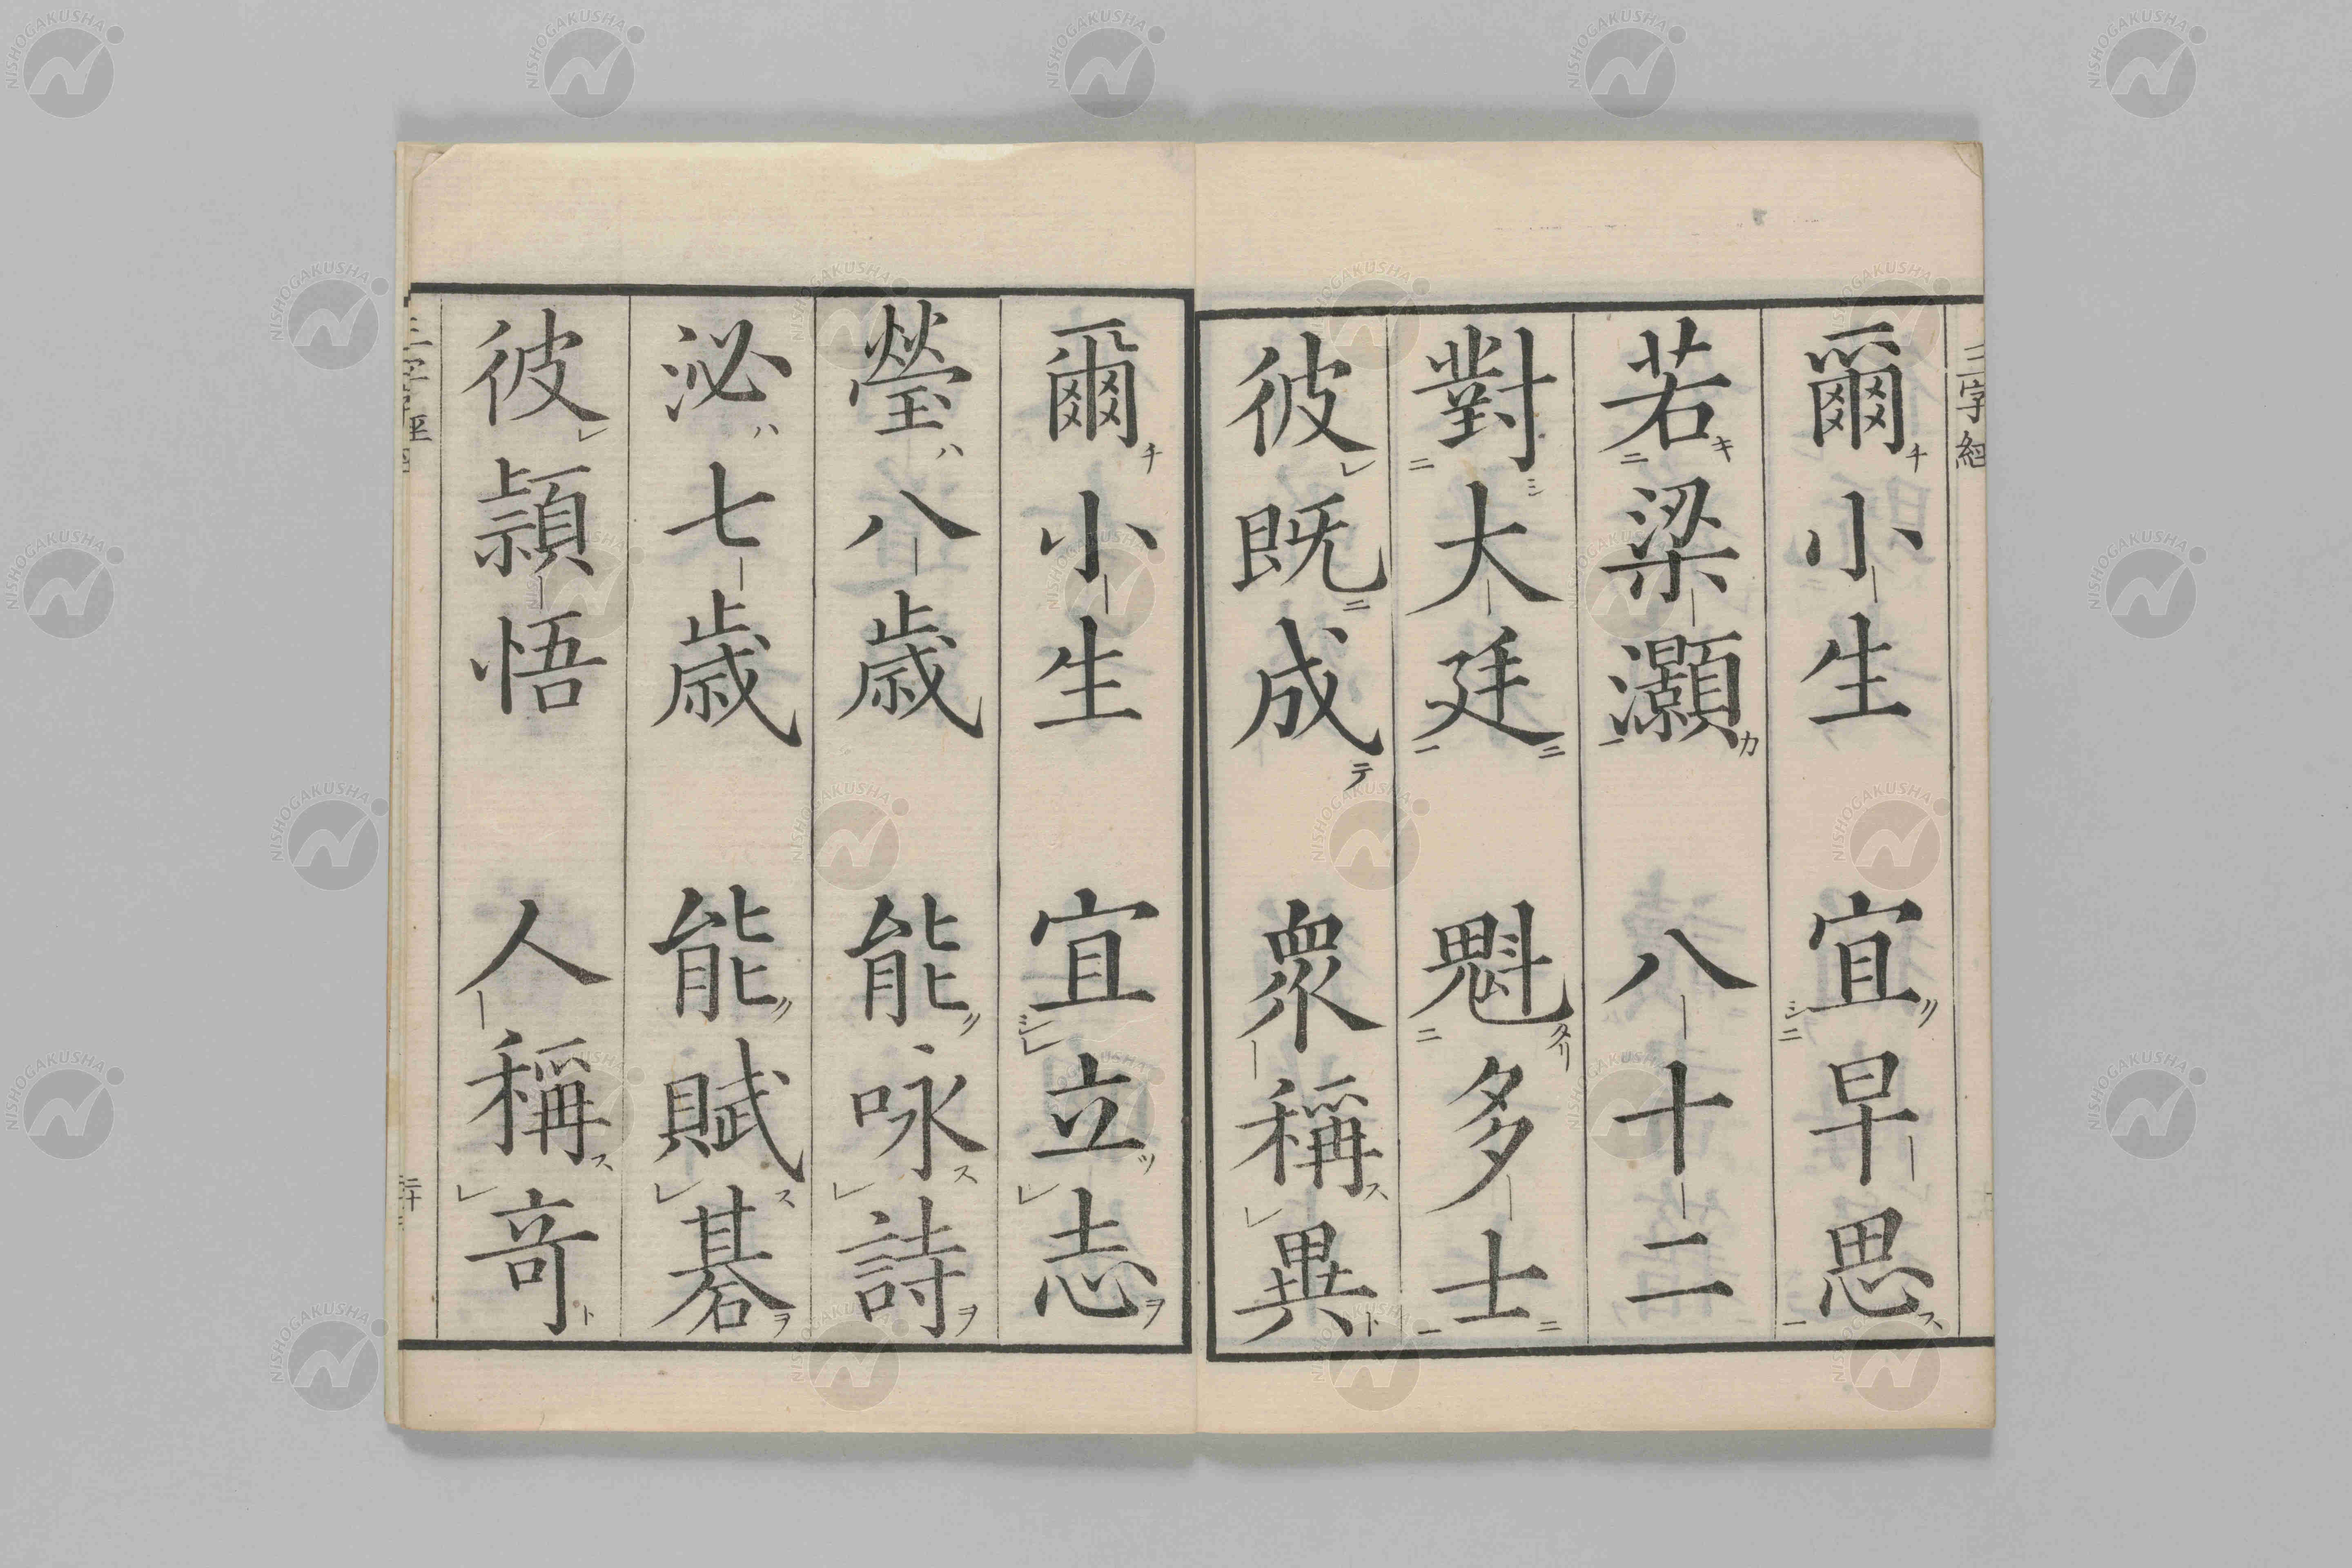 三字經
爾小生 宜早思
若梁灝 八十二
對大廷 魁多士
彼既成 衆稱異
爾小生 宜立志
瑩八歲 能咏詩
泌七歲 能賦碁
彼穎悟 人稱奇
三字經
NISHOGAKUSHA